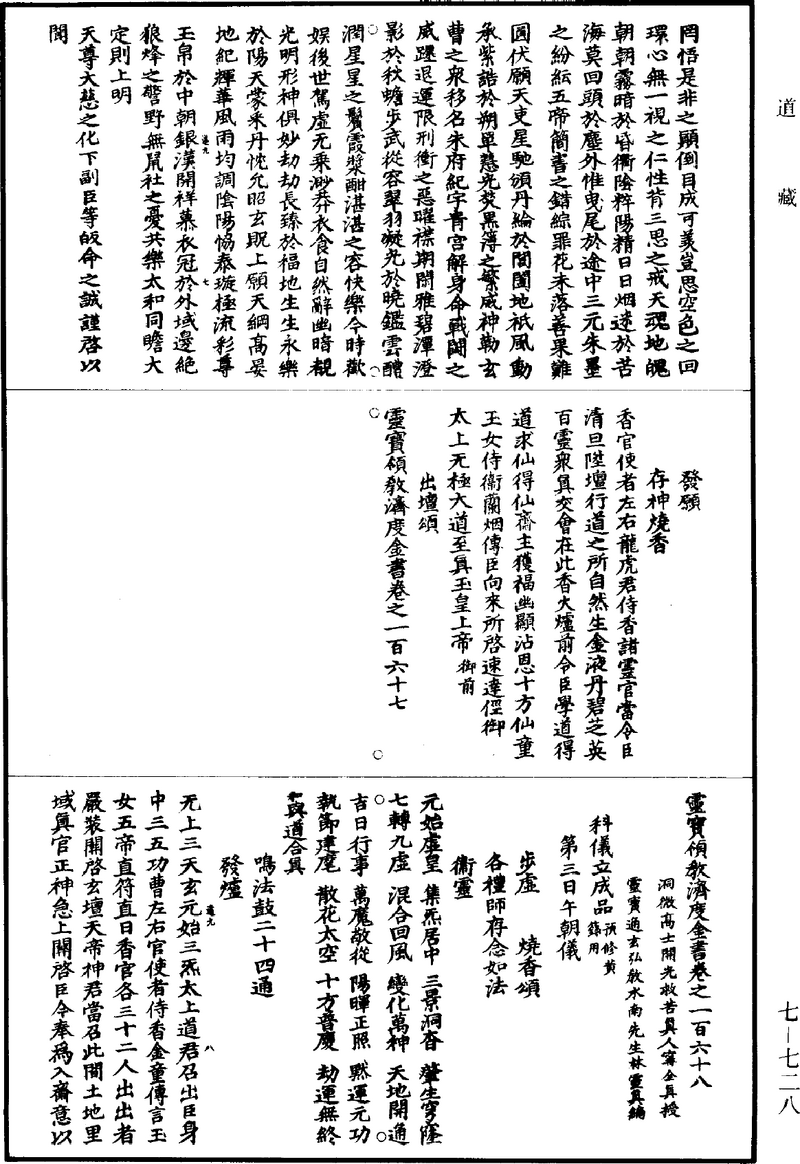 道藏
罔悟是非之顛倒目成可羨豈思空色之回
環心無一視之仁性肯三思之戒天魂地魄
朝朝霧暗於昏衢陰粹陽精日日烟迷於苦
海莫回頭於塵外惟曳尾於途中三元朱墨
之紛紜五帝簡書之錯綜罪花未落善果難
圓伏願天吏星馳頒丹綸於閶闔地祇風動
承紫誥於朔單慧光焚黑簿之繁威神勒玄
曹之眾移名朱府紀字青宮解身命戰鬪之
威踶退運限刑衝之惡曜襟期閒雅碧潭澄
影於秋蟾步武從容翠羽凝光於曉鑑雲醴
潤星星之鬢霞漿酣湛湛之容快樂今時歡
娛後世駕虛无乘渺莽衣食自然辭幽暗覩
光明形神俱妙劫劫長臻於福地生生永樂
於陽天蒙釆丹忱允昭玄貺上願天綱高晏
地紀輝華風雨均調陰陽恊泰璇極流彩尊
玉帛於中朝銀漢開祥慕衣冠於外域邊絕
狼烽之警野無鼠社之憂共樂太和同瞻大
定則上明
天尊大慈之化下副臣等皈命之誠謹啓以
聞
發願
存神燒香
香官使者左右龍虎君侍香諸靈官當令臣
清旦陞壇行道之所自然生金液丹碧芝英
百靈衆眞交會在此香火爐前令臣學道得
道求仙得仙齋主獲福幽顯沾恩十方仙童
玉女侍衞蘭烟傳臣向來所啓速達徑御
太上无極大道至眞玉皇上帝御前
出壇頌
靈寶領教濟度金書卷之一百六十七
靈寶領教濟度金書卷之一百六十八
洞微高士開光救苦眞人甯全眞授
靈寶通玄弘教水南先生林靈眞編
科儀立成品預修黃籙用
第三日午朝儀
步虛　燒香頌
各禮師存念如法
衞靈
元始虛皇　集炁居中　三景洞杳　肇生穹窿
七轉九虛　混合回風　變化萬神　天地開通
吉日行事　萬魔敬從　陽暉正照　黙運元功
執節建麾　散花太空　十方普慶　劫運無終
和與道合眞
鳴法鼓二十四通
發爐
无上三天玄元始三炁太上道君召出臣身
中三五功曹左右官使者侍香金童傳言玉
女五帝直符直日香官各三十二人出出者
嚴裝關啓玄壇天帝神君當召此間土地里
域眞官正神急上關啓臣今奉爲入齋意以
七－七二八